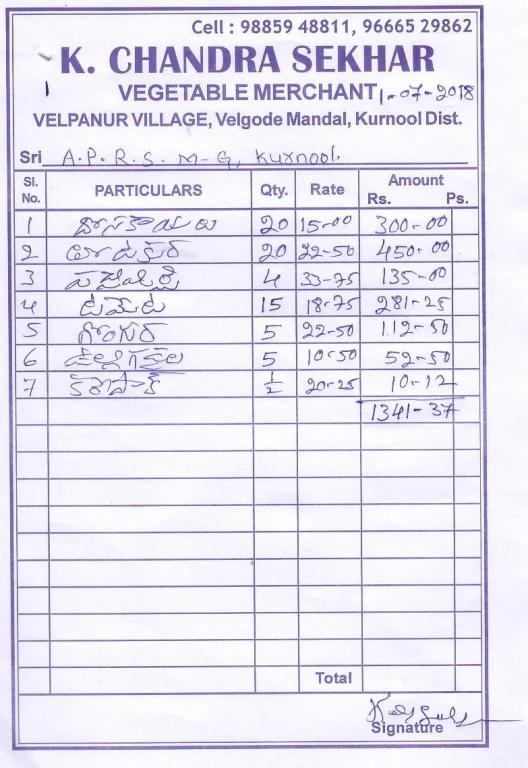 Cell : 98859 48811, 96665 29862
K. CHANDRA SEKHAR
VEGETABLE MERCHANT 1-07-2018
VELPANUR VILLAGE, Velgode Mandal, Kurnool Dist.
Sri A.P.R.S. M-G, Kurnool.
Sl. No. PARTICULARS Qty. Rate Amount Rs. Ps.
1 దోసకాయలు 20 15-00 300-00
2 20 22-50 450-00
3 4 33-75 135-00
4 టమోట 15 18-75 281-25
5 గోంగూర 5 22-50 112-50
6 5 10-50 52-50
7 ½ 20-25 10-12
1341-37
Total
Signature